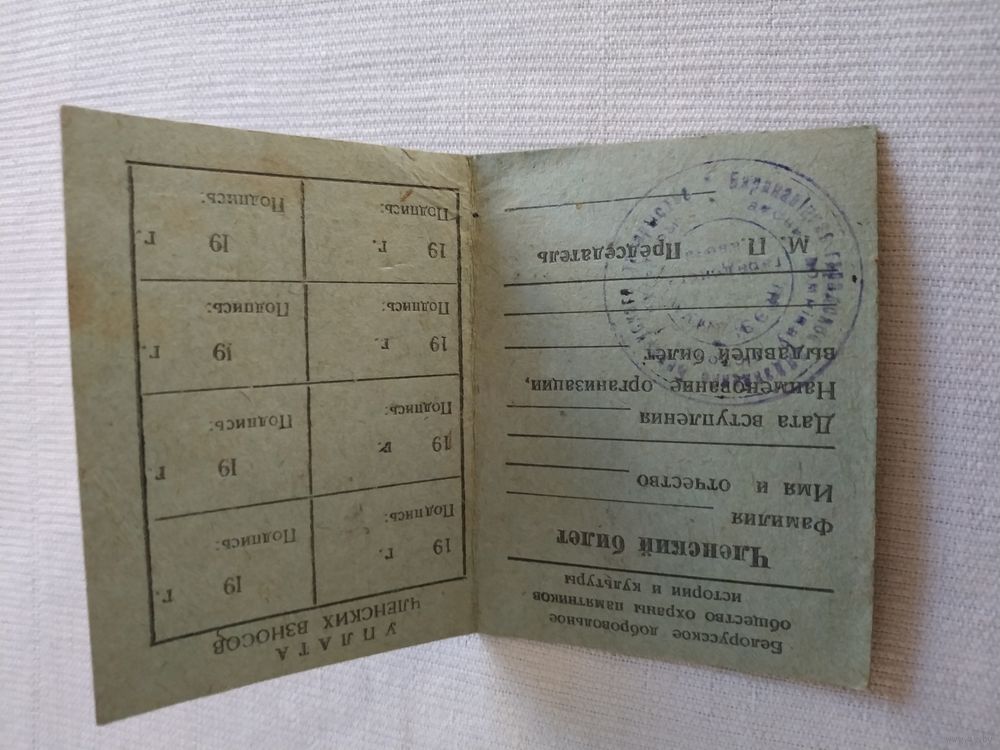 Белорусское добровольное
общество охраны памятников
истории и культуры
Членский билет
Фамилия
Имя и отчество
Дата вступления
Наименование организации,
выдавшей билет
М. П. Председатель
УПЛАТА
ЧЛЕНСКИХ ВЗНОСОВ
19 г.
Подпись:
19 г.
Подпись:
19 г.
Подпись:
19 г
Подпись:
19 г.
Подпись:
19 г.
Подпись:
19 г.
Подпись:
19 г.
Подпись: